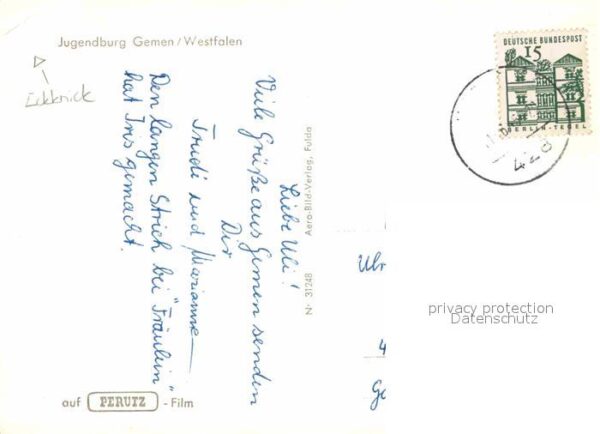 Jugendburg Gemen/Westfalen
Eckknick
DEUTSCHE BUNDESPOST
15
BERLIN-TEGEL
428
Liebe Uli!
Viele Grüße aus Gemen senden
Dir
Trudi und Marianne
Den langen Strich bei "Fräulein"
hat Iris gemacht.
Nr. 31248 Aero-Bild-Verlag, Fulda
Ulr
4
Ge
privacy protection
Datenschutz
auf PERUTZ - Film